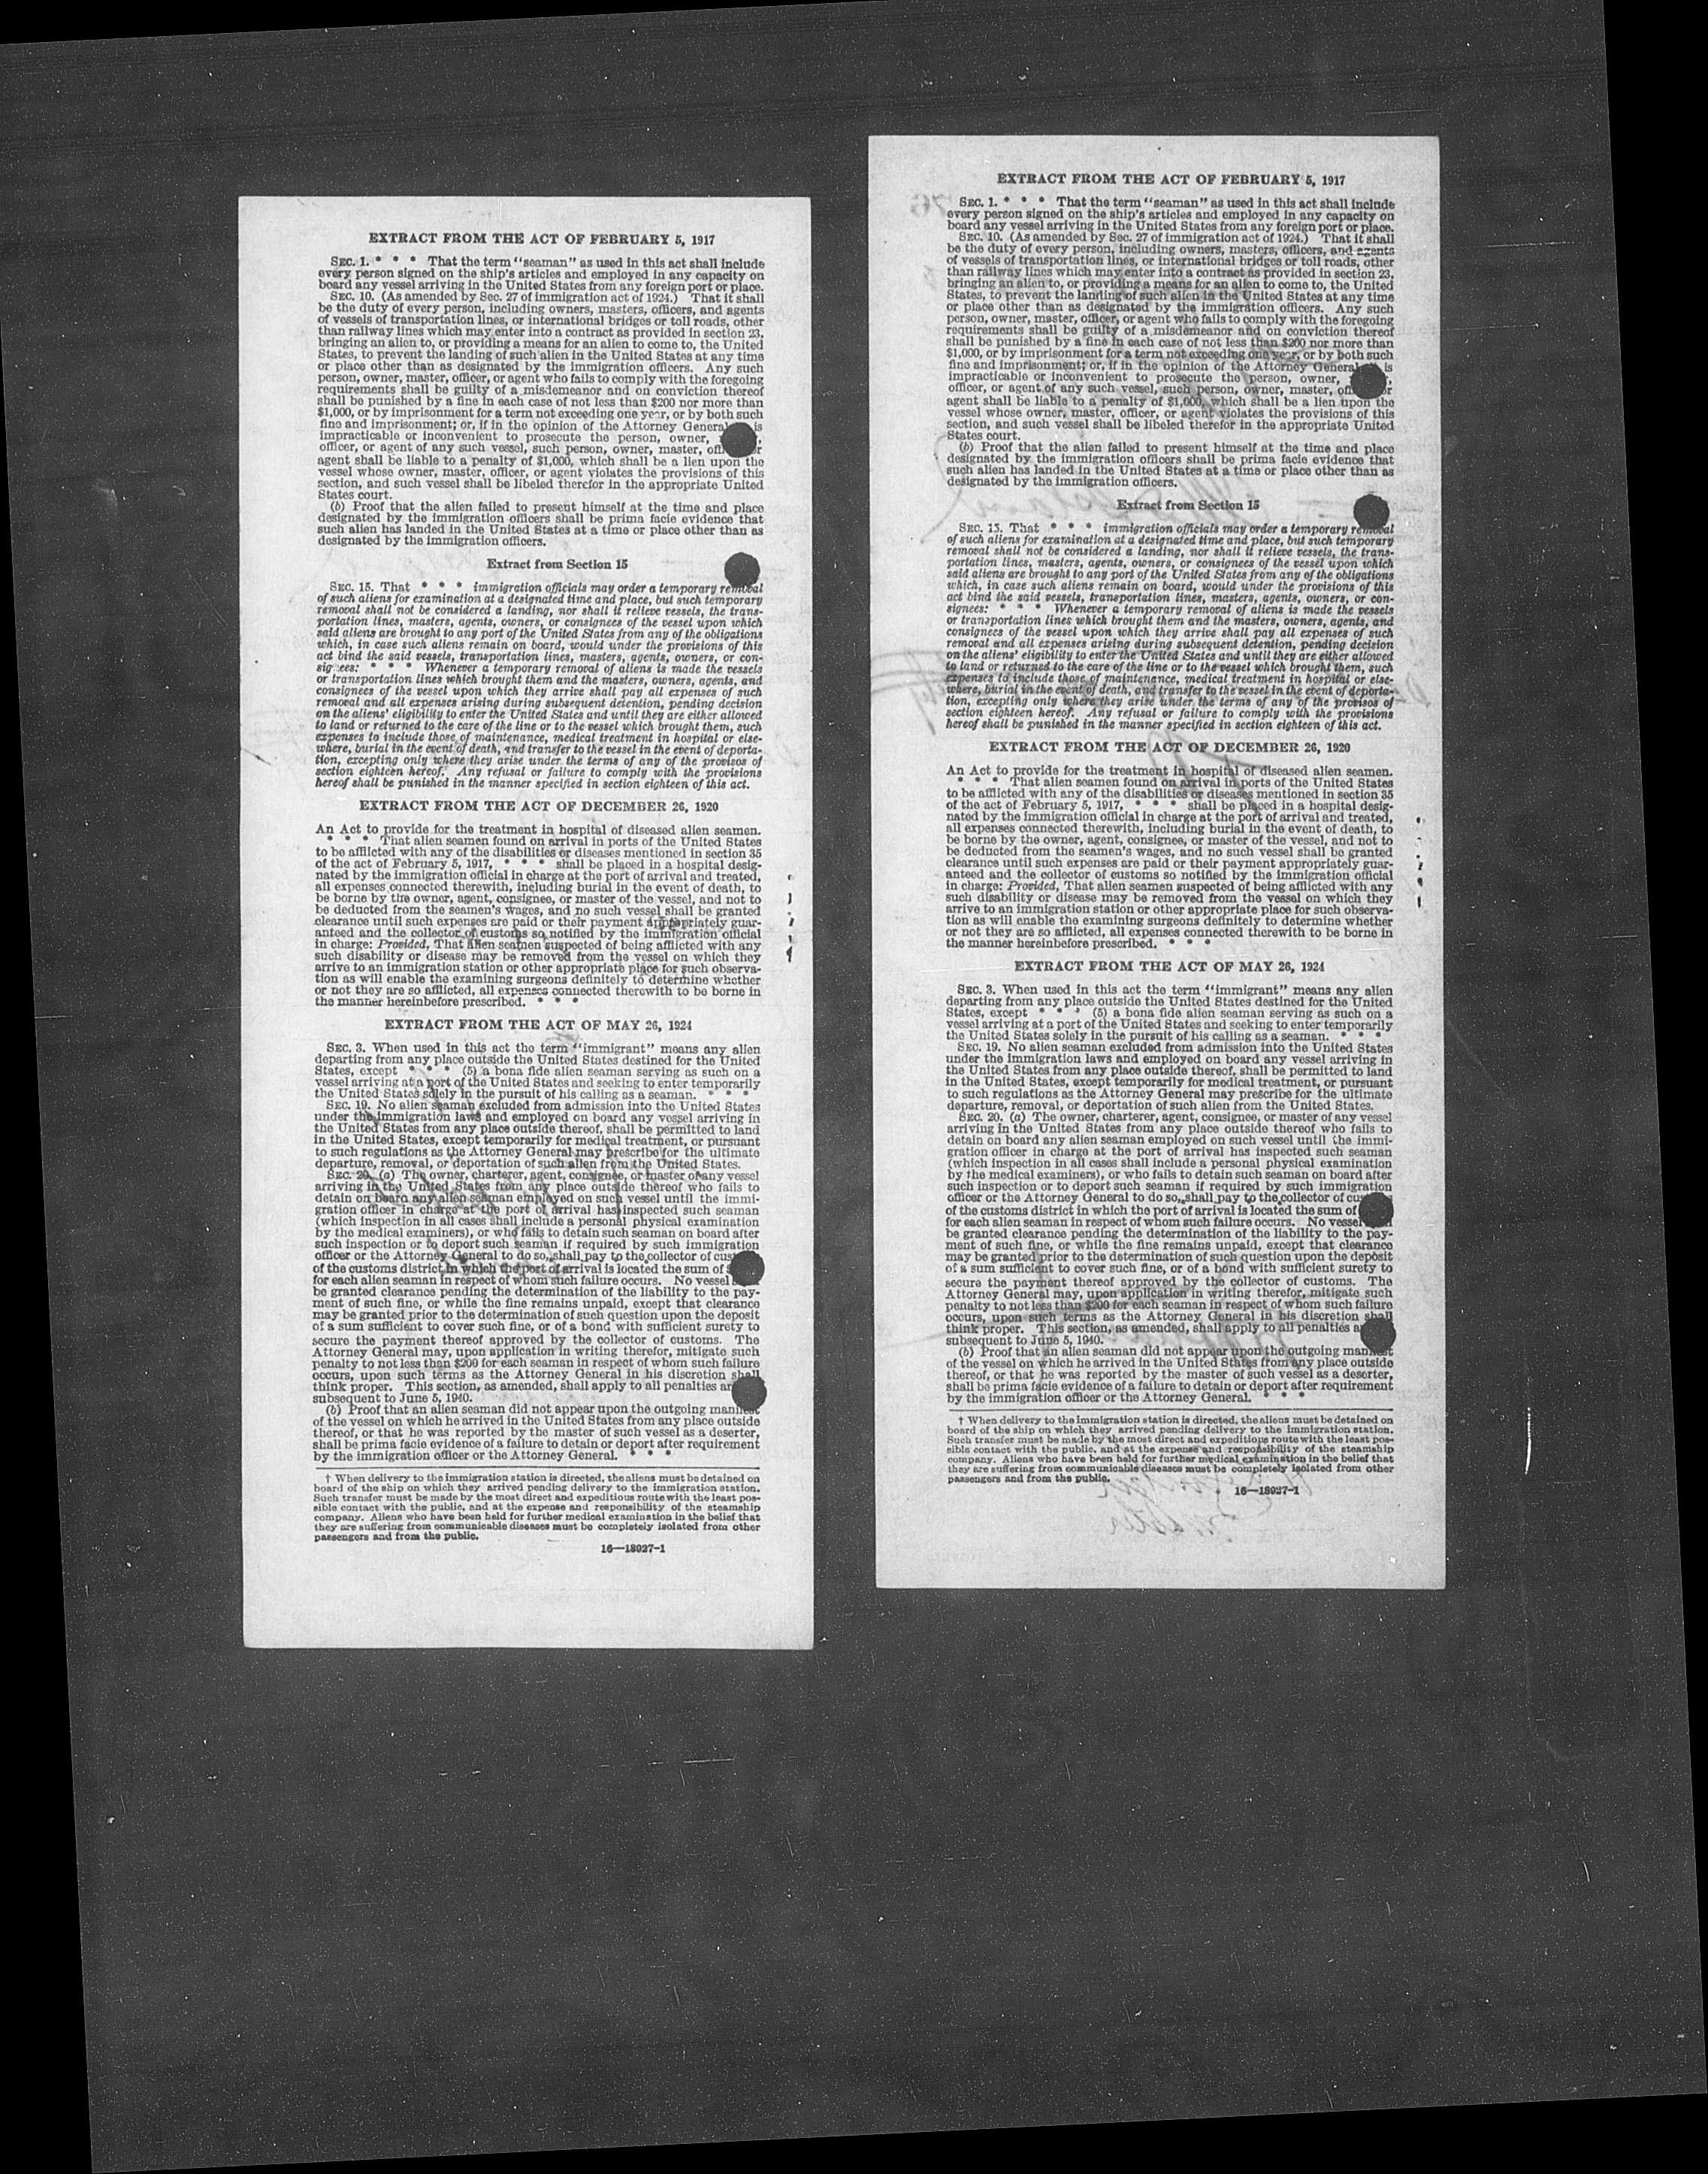 EXTRACT FROM THE ACT OF FEBRUARY 5, 1917
SEC. 1. * * * That the term "seaman" as used in this act shall include
every person signed on the ship's articles and employed in any capacity on
board any vessel arriving in the United States from any foreign port or place.
SEC. 10. (As amended by Sec. 27 of immigration act of 1924.) That it shall
be the duty of every person, including owners, masters, officers, and agents
of vessels of transportation lines, or international bridges or toll roads, other
than railway lines which may enter into a contract as provided in section 23,
bringing an alien to, or providing a means for an alien to come to, the United
States, to prevent the landing of such alien in the United States at any time
or place other than as designated by the immigration officers. Any such
person, owner, master, officer, or agent who fails to comply with the foregoing
requirements shall be guilty of a misdemeanor and on conviction thereof
shall be punished by a fine in each case of not less than $200 nor more than
$1,000, or by imprisonment for a term not exceeding one year, or by both such
fine and imprisonment; or, if in the opinion of the Attorney General is
impracticable or inconvenient to prosecute the person, owner,
officer, or agent of any such vessel, such person, owner, master,
agent shall be liable to a penalty of $1,000, which shall be a lien upon the
vessel whose owner, master, officer, or agent violates the provisions of this
section, and such vessel shall be libeled therefor in the appropriate United
States court.
(b) Proof that the alien failed to present himself at the time and place
designated by the immigration officers shall be prima facie evidence that
such alien has landed in the United States at a time or place other than as
designated by the immigration officers.
Extract from Section 15
SEC. 15. That * * * immigration officials may order a temporary removal
of such aliens for examination at a designated time and place, but such temporary
removal shall not be considered a landing, nor shall it relieve vessels, the trans-
portation lines, masters, agents, owners, or consignees of the vessel upon which
said aliens are brought to any port of the United States from any of the obligations
which, in case such aliens remain on board, would under the provisions of this
act bind the said vessels, transportation lines, masters, agents, owners, or con-
signees: * * * Whenever a temporary removal of aliens is made the vessels
or transportation lines which brought them and the masters, owners, agents, and
consignees of the vessel upon which they arrive shall pay all expenses of such
removal and all expenses arising during subsequent detention, pending decision
on the aliens' eligibility to enter the United States and until they are either allowed
to land or returned to the care of the line or to the vessel which brought them, such
expenses to include those of maintenance, medical treatment in hospital or else-
where, burial in the event of death, and transfer to the vessel in the event of deporta-
tion, excepting only where they arise under the terms of any of the provisos of
section eighteen hereof. Any refusal or failure to comply with the provisions
hereof shall be punished in the manner specified in section eighteen of this act.
EXTRACT FROM THE ACT OF DECEMBER 26, 1920
An Act to provide for the treatment in hospital of diseased alien seamen.
* * * That alien seamen found on arrival in ports of the United States
to be afflicted with any of the disabilities or diseases mentioned in section 35
of the act of February 5, 1917, * * * shall be placed in a hospital desig-
nated by the immigration official in charge at the port of arrival and treated,
all expenses connected therewith, including burial in the event of death, to
be borne by the owner, agent, consignee, or master of the vessel, and not to
be deducted from the seamen's wages, and no such vessel shall be granted
clearance until such expenses are paid or their payment appropriately guar-
anteed and the collector of customs so notified by the immigration official
in charge: Provided, That alien seamen suspected of being afflicted with any
such disability or disease may be removed from the vessel on which they
arrive to an immigration station or other appropriate place for such observa-
tion as will enable the examining surgeons definitely to determine whether
or not they are so afflicted, all expenses connected therewith to be borne in
the manner hereinbefore prescribed. * * *
EXTRACT FROM THE ACT OF MAY 26, 1924
SEC. 3. When used in this act the term "immigrant" means any alien
departing from any place outside the United States destined for the United
States, except * * * (5) a bona fide alien seaman serving as such on a
vessel arriving at a port of the United States and seeking to enter temporarily
the United States solely in the pursuit of his calling as a seaman. * * *
SEC. 19. No alien seaman excluded from admission into the United States
under the immigration laws and employed on board any vessel arriving in
the United States from any place outside thereof, shall be permitted to land
in the United States, except temporarily for medical treatment, or pursuant
to such regulations as the Attorney General may prescribe for the ultimate
departure, removal, or deportation of such alien from the United States.
SEC. 20. (a) The owner, charterer, agent, consignee, or master of any vessel
arriving in the United States from any place outside thereof who fails to
detain on board any alien seaman employed on such vessel until the immi-
gration officer in charge at the port of arrival has inspected such seaman
(which inspection in all cases shall include a personal physical examination
by the medical examiners), or who fails to detain such seaman on board after
such inspection or to deport such seaman if required by such immigration
officer or the Attorney General to do so, shall pay to the collector of
of the customs district in which the port of arrival is located the sum of
for each alien seaman in respect of whom such failure occurs. No vessel
be granted clearance pending the determination of the liability to the pay-
ment of such fine, or while the fine remains unpaid, except that clearance
may be granted prior to the determination of such question upon the deposit
of a sum sufficient to cover such fine, or of a bond with sufficient surety to
secure the payment thereof approved by the collector of customs. The
Attorney General may, upon application in writing therefor, mitigate such
penalty to not less than $200 for each seaman in respect of whom such failure
occurs, upon such terms as the Attorney General in his discretion shall
think proper. This section, as amended, shall apply to all penalties
subsequent to June 5, 1940.
(b) Proof that an alien seaman did not appear upon the outgoing manifest
of the vessel on which he arrived in the United States from any place outside
thereof, or that he was reported by the master of such vessel as a deserter,
shall be prima facie evidence of a failure to detain or deport after requirement
by the immigration officer or the Attorney General. * * *
† When delivery to the immigration station is directed, the aliens must be detained on
board of the ship on which they arrived pending delivery to the immigration station.
Such transfer must be made by the most direct and expeditious route with the least pos-
sible contact with the public, and at the expense and responsibility of the steamship
company. Aliens who have been held for further medical examination in the belief that
they are suffering from communicable diseases must be completely isolated from other
passengers and from the public.
16—18927-1
EXTRACT FROM THE ACT OF FEBRUARY 5, 1917
SEC. 1. * * * That the term "seaman" as used in this act shall include
every person signed on the ship's articles and employed in any capacity on
board any vessel arriving in the United States from any foreign port or place.
SEC. 10. (As amended by Sec. 27 of immigration act of 1924.) That it shall
be the duty of every person, including owners, masters, officers, and agents
of vessels of transportation lines, or international bridges or toll roads, other
than railway lines which may enter into a contract as provided in section 23,
bringing an alien to, or providing a means for an alien to come to, the United
States, to prevent the landing of such alien in the United States at any time
or place other than as designated by the immigration officers. Any such
person, owner, master, officer, or agent who fails to comply with the foregoing
requirements shall be guilty of a misdemeanor and on conviction thereof
shall be punished by a fine in each case of not less than $200 nor more than
$1,000, or by imprisonment for a term not exceeding one year, or by both such
fine and imprisonment; or, if in the opinion of the Attorney General is
impracticable or inconvenient to prosecute the person, owner,
officer, or agent of any such vessel, such person, owner, master,
agent shall be liable to a penalty of $1,000, which shall be a lien upon the
vessel whose owner, master, officer, or agent violates the provisions of this
section, and such vessel shall be libeled therefor in the appropriate United
States court.
(b) Proof that the alien failed to present himself at the time and place
designated by the immigration officers shall be prima facie evidence that
such alien has landed in the United States at a time or place other than as
designated by the immigration officers.
Extract from Section 15
SEC. 15. That * * * immigration officials may order a temporary removal
of such aliens for examination at a designated time and place, but such temporary
removal shall not be considered a landing, nor shall it relieve vessels, the trans-
portation lines, masters, agents, owners, or consignees of the vessel upon which
said aliens are brought to any port of the United States from any of the obligations
which, in case such aliens remain on board, would under the provisions of this
act bind the said vessels, transportation lines, masters, agents, owners, or con-
signees: * * * Whenever a temporary removal of aliens is made the vessels
or transportation lines which brought them and the masters, owners, agents, and
consignees of the vessel upon which they arrive shall pay all expenses of such
removal and all expenses arising during subsequent detention, pending decision
on the aliens' eligibility to enter the United States and until they are either allowed
to land or returned to the care of the line or to the vessel which brought them, such
expenses to include those of maintenance, medical treatment in hospital or else-
where, burial in the event of death, and transfer to the vessel in the event of deporta-
tion, excepting only where they arise under the terms of any of the provisos of
section eighteen hereof. Any refusal or failure to comply with the provisions
hereof shall be punished in the manner specified in section eighteen of this act.
EXTRACT FROM THE ACT OF DECEMBER 26, 1920
An Act to provide for the treatment in hospital of diseased alien seamen.
* * * That alien seamen found on arrival in ports of the United States
to be afflicted with any of the disabilities or diseases mentioned in section 35
of the act of February 5, 1917, * * * shall be placed in a hospital desig-
nated by the immigration official in charge at the port of arrival and treated,
all expenses connected therewith, including burial in the event of death, to
be borne by the owner, agent, consignee, or master of the vessel, and not to
be deducted from the seamen's wages, and no such vessel shall be granted
clearance until such expenses are paid or their payment appropriately guar-
anteed and the collector of customs so notified by the immigration official
in charge: Provided, That alien seamen suspected of being afflicted with any
such disability or disease may be removed from the vessel on which they
arrive to an immigration station or other appropriate place for such observa-
tion as will enable the examining surgeons definitely to determine whether
or not they are so afflicted, all expenses connected therewith to be borne in
the manner hereinbefore prescribed. * * *
EXTRACT FROM THE ACT OF MAY 26, 1924
SEC. 3. When used in this act the term "immigrant" means any alien
departing from any place outside the United States destined for the United
States, except * * * (5) a bona fide alien seaman serving as such on a
vessel arriving at a port of the United States and seeking to enter temporarily
the United States solely in the pursuit of his calling as a seaman. * * *
SEC. 19. No alien seaman excluded from admission into the United States
under the immigration laws and employed on board any vessel arriving in
the United States from any place outside thereof, shall be permitted to land
in the United States, except temporarily for medical treatment, or pursuant
to such regulations as the Attorney General may prescribe for the ultimate
departure, removal, or deportation of such alien from the United States.
SEC. 20. (a) The owner, charterer, agent, consignee, or master of any vessel
arriving in the United States from any place outside thereof who fails to
detain on board any alien seaman employed on such vessel until the immi-
gration officer in charge at the port of arrival has inspected such seaman
(which inspection in all cases shall include a personal physical examination
by the medical examiners), or who fails to detain such seaman on board after
such inspection or to deport such seaman if required by such immigration
officer or the Attorney General to do so, shall pay to the collector of
of the customs district in which the port of arrival is located the sum of
for each alien seaman in respect of whom such failure occurs. No vessel
be granted clearance pending the determination of the liability to the pay-
ment of such fine, or while the fine remains unpaid, except that clearance
may be granted prior to the determination of such question upon the deposit
of a sum sufficient to cover such fine, or of a bond with sufficient surety to
secure the payment thereof approved by the collector of customs. The
Attorney General may, upon application in writing therefor, mitigate such
penalty to not less than $200 for each seaman in respect of whom such failure
occurs, upon such terms as the Attorney General in his discretion shall
think proper. This section, as amended, shall apply to all penalties
subsequent to June 5, 1940.
(b) Proof that an alien seaman did not appear upon the outgoing manifest
of the vessel on which he arrived in the United States from any place outside
thereof, or that he was reported by the master of such vessel as a deserter,
shall be prima facie evidence of a failure to detain or deport after requirement
by the immigration officer or the Attorney General. * * *
† When delivery to the immigration station is directed, the aliens must be detained on
board of the ship on which they arrived pending delivery to the immigration station.
Such transfer must be made by the most direct and expeditious route with the least pos-
sible contact with the public, and at the expense and responsibility of the steamship
company. Aliens who have been held for further medical examination in the belief that
they are suffering from communicable diseases must be completely isolated from other
passengers and from the public.
16—18927-1